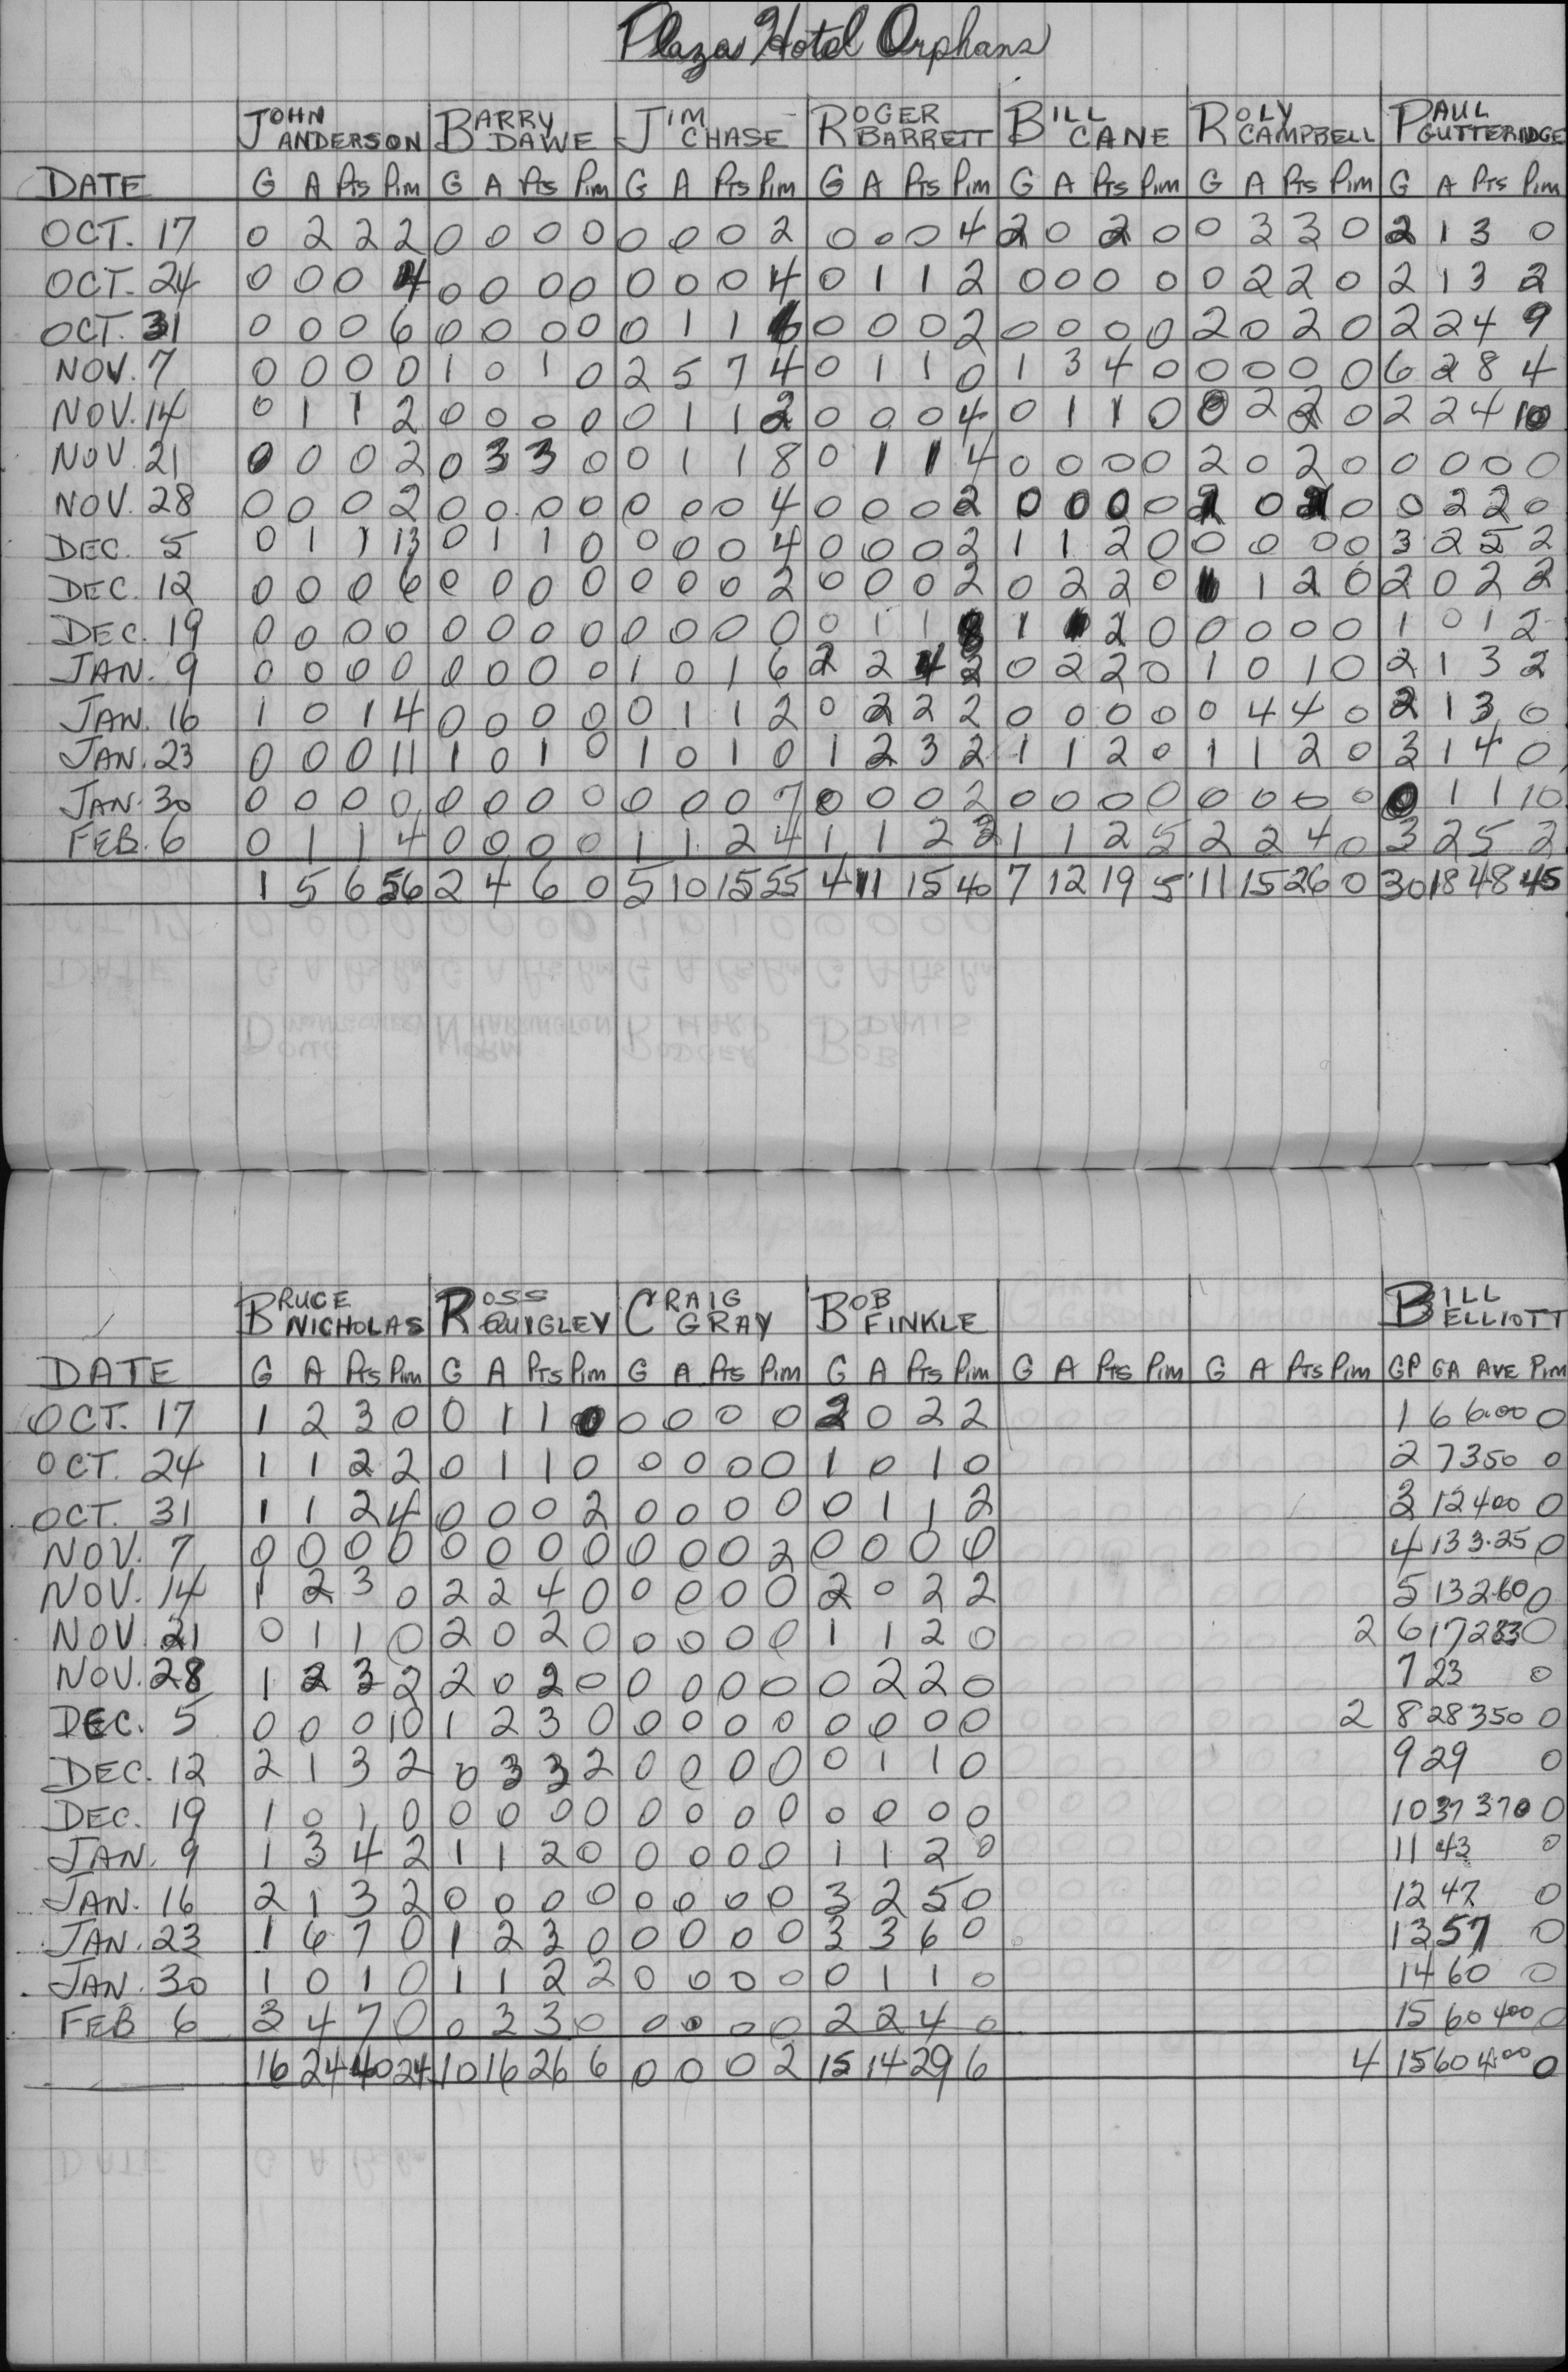 Plaza Hotel Orphans
JOHN ANDERSON BARRY DAWE JIM CHASE ROGER BARRETT BILL CANE ROLY CAMPBELL PAUL GUTTERIDGE
DATE G A Pts Pim G A Pts Pim G A Pts Pim G A Pts Pim G A Pts Pim G A Pts Pim G A Pts Pim
OCT. 17 0 2 2 2 0 0 0 0 0 0 0 2 0 0 0 4 2 0 2 0 0 3 3 0 2 1 3 0
OCT. 24 0 0 0 4 0 0 0 0 0 0 0 4 0 1 1 2 0 0 0 0 0 2 2 0 2 1 3 2
OCT. 31 0 0 0 6 0 0 0 0 0 1 1 6 0 0 0 2 0 0 0 0 2 0 2 0 2 2 4 9
NOV. 7 0 0 0 0 1 0 1 0 2 5 7 4 0 1 1 0 1 3 4 0 0 0 0 0 6 2 8 4
NOV. 14 0 1 1 2 0 0 0 0 0 1 1 2 0 0 0 4 0 1 1 0 0 2 2 0 2 2 4 10
NOV 21 0 0 0 2 0 3 3 0 0 1 1 8 0 1 1 4 0 0 0 0 2 0 2 0 0 0 0 0
NOV. 28 0 0 0 2 0 0 0 0 0 0 0 4 0 0 0 2 0 0 0 0 2 0 2 0 0 2 2 0
DEC. 5 0 1 1 13 0 1 1 0 0 0 0 4 0 0 0 2 1 1 2 0 0 0 0 0 3 2 5 2
DEC. 12 0 0 0 6 0 0 0 0 0 0 0 2 0 0 0 2 0 2 2 0 1 1 2 0 2 0 2 2
DEC. 19 0 0 0 0 0 0 0 0 0 0 0 0 0 1 1 8 1 1 2 0 0 0 0 0 1 0 1 2
JAN. 9 0 0 0 0 0 0 0 0 1 0 1 6 2 2 4 2 0 2 2 0 1 0 1 0 2 1 3 2
JAN. 16 1 0 1 4 0 0 0 0 0 1 1 2 0 2 2 2 0 0 0 0 0 4 4 0 2 1 3 0
JAN. 23 0 0 0 11 1 0 1 0 1 0 1 0 1 2 3 2 1 1 2 0 1 1 2 0 3 1 4 0
JAN. 30 0 0 0 0 0 0 0 0 0 0 0 7 0 0 0 2 0 0 0 0 0 0 0 0 0 1 1 10
FEB. 6 0 1 1 4 0 0 0 0 1 1 2 4 1 1 2 2 1 1 2 5 2 2 4 0 3 2 5 2
1 5 6 56 2 4 6 0 5 10 15 55 4 11 15 40 7 12 19 5 11 15 26 0 30 18 48 45
BRUCE NICHOLAS ROSS QUIGLEY CRAIG GRAY BOB FINKLE BILL ELLIOTT
DATE G A Pts Pim G A Pts Pim G A Pts Pim G A Pts Pim G A Pts Pim G A Pts Pim GP GA AVE Pim
OCT. 17 1 2 3 0 0 1 1 0 0 0 0 0 2 0 2 2 1 6 6.00 0
OCT. 24 1 1 2 2 0 1 1 0 0 0 0 0 1 0 1 0 2 7 350 0
OCT. 31 1 1 2 4 0 0 0 2 0 0 0 0 0 1 1 2 3 12 400 0
NOV. 7 0 0 0 0 0 0 0 0 0 0 0 2 0 0 0 0 4 13 3.25 0
NOV. 14 1 2 3 0 2 2 4 0 0 0 0 0 2 0 2 2 5 13 260 0
NOV 21 0 1 1 0 2 0 2 0 0 0 0 0 1 1 2 0 2 6 17 283 0
NOV. 28 1 2 3 2 2 0 2 0 0 0 0 0 0 2 2 0 7 23 0
DEC. 5 0 0 0 10 1 2 3 0 0 0 0 0 0 0 0 0 2 8 28 350 0
DEC. 12 2 1 3 2 0 3 3 2 0 0 0 0 0 1 1 0 9 29 0
DEC. 19 1 0 1 0 0 0 0 0 0 0 0 0 0 0 0 0 10 37 370 0
JAN. 9 1 3 4 2 1 1 2 0 0 0 0 0 1 1 2 0 11 43 0
JAN. 16 2 1 3 2 0 0 0 0 0 0 0 0 3 2 5 0 12 47 0
JAN. 23 1 6 7 0 1 2 3 0 0 0 0 0 3 3 6 0 13 57 0
JAN. 30 1 0 1 0 1 1 2 2 0 0 0 0 0 1 1 0 14 60 0
FEB 6 3 4 7 0 0 3 3 0 0 0 0 0 2 2 4 0 15 60 400 0
16 24 40 24 10 16 26 6 0 0 0 2 15 14 29 6 4 15 60 4.00 0